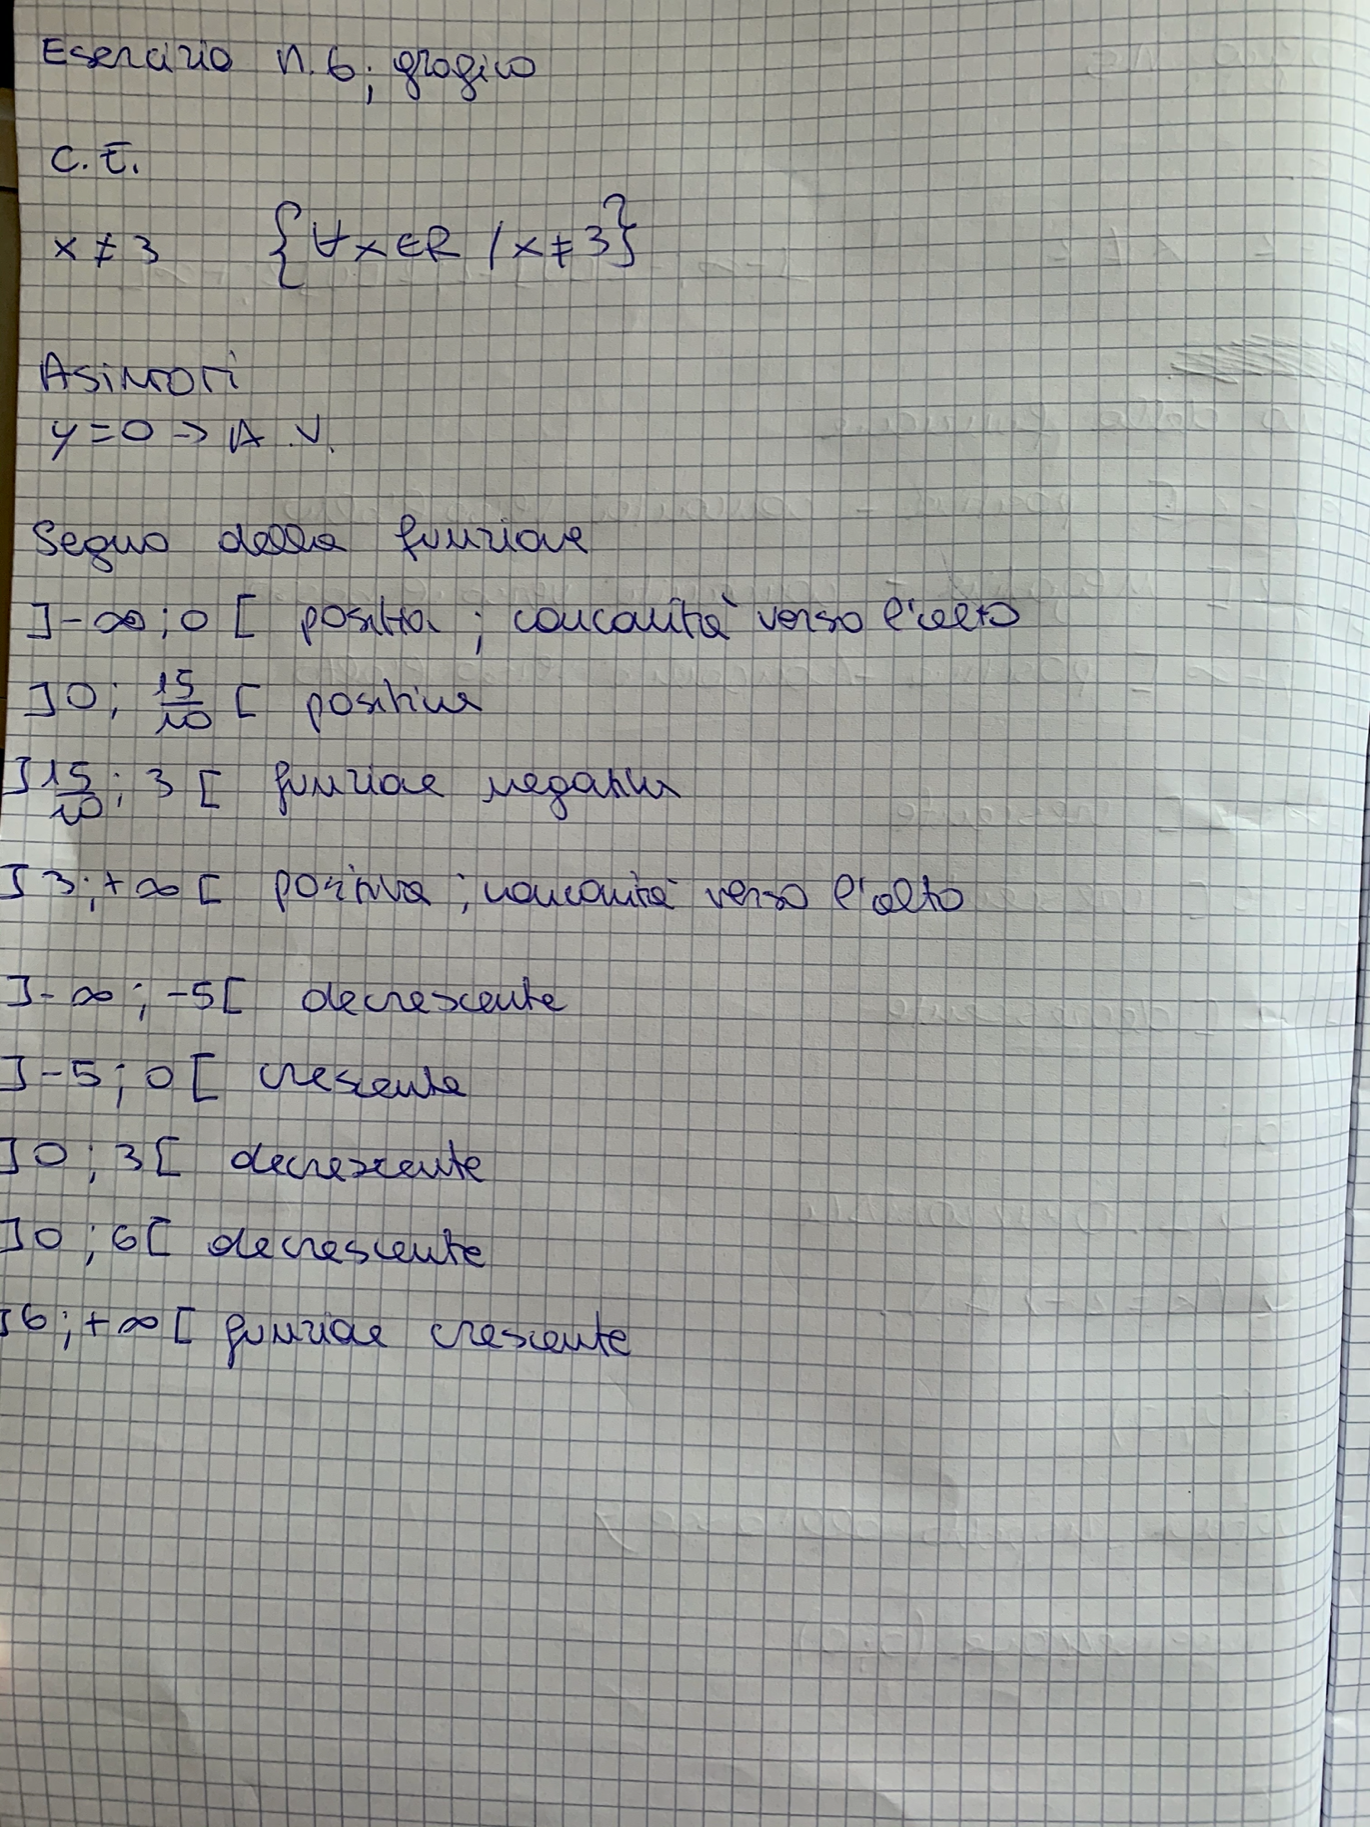 Esercizio n.6; grafico
C.E.
x ≠ 3 {∀x∈R / x ≠ 3}
Asintoti
y=0 -> A.V.
Segno della funzione
]-∞;0[ positiva; concavità verso l'alto
]0; 15/10 [ positiva
]15/10; 3[ funzione negativa
]3;+∞[ positiva; concavità verso l'alto
]-∞; -5[ decrescente
]-5; 0[ crescente
]0; 3[ decrescente
]0; 6[ decrescente
]6; +∞[ funzione crescente